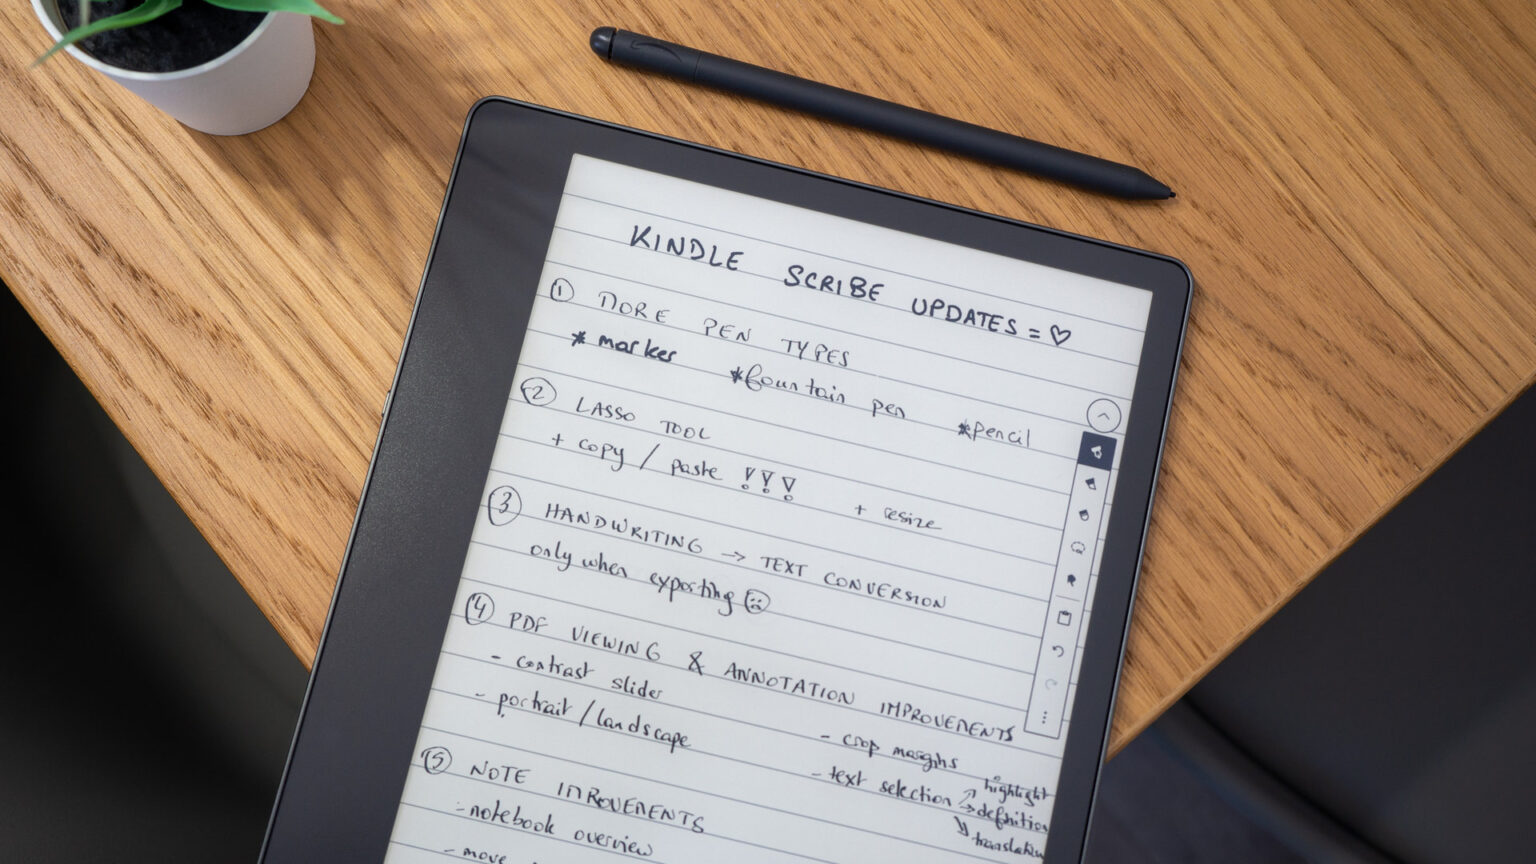 KINDLE SCRIBE UPDATES = ♡
① MORE PEN TYPES
* marker *fountain pen *pencil
② LASSO TOOL
+ copy / paste !!! + resize
③ HANDWRITING → TEXT CONVERSION
only when exporting ☹
④ PDF VIEWING & ANNOTATION IMPROVEMENTS
- contrast slider
- portrait / landscape
- crop margins
- text selection ↗ highlight
→ definition
↘ translation
⑤ NOTE IMPROVEMENTS
- notebook overview
- move